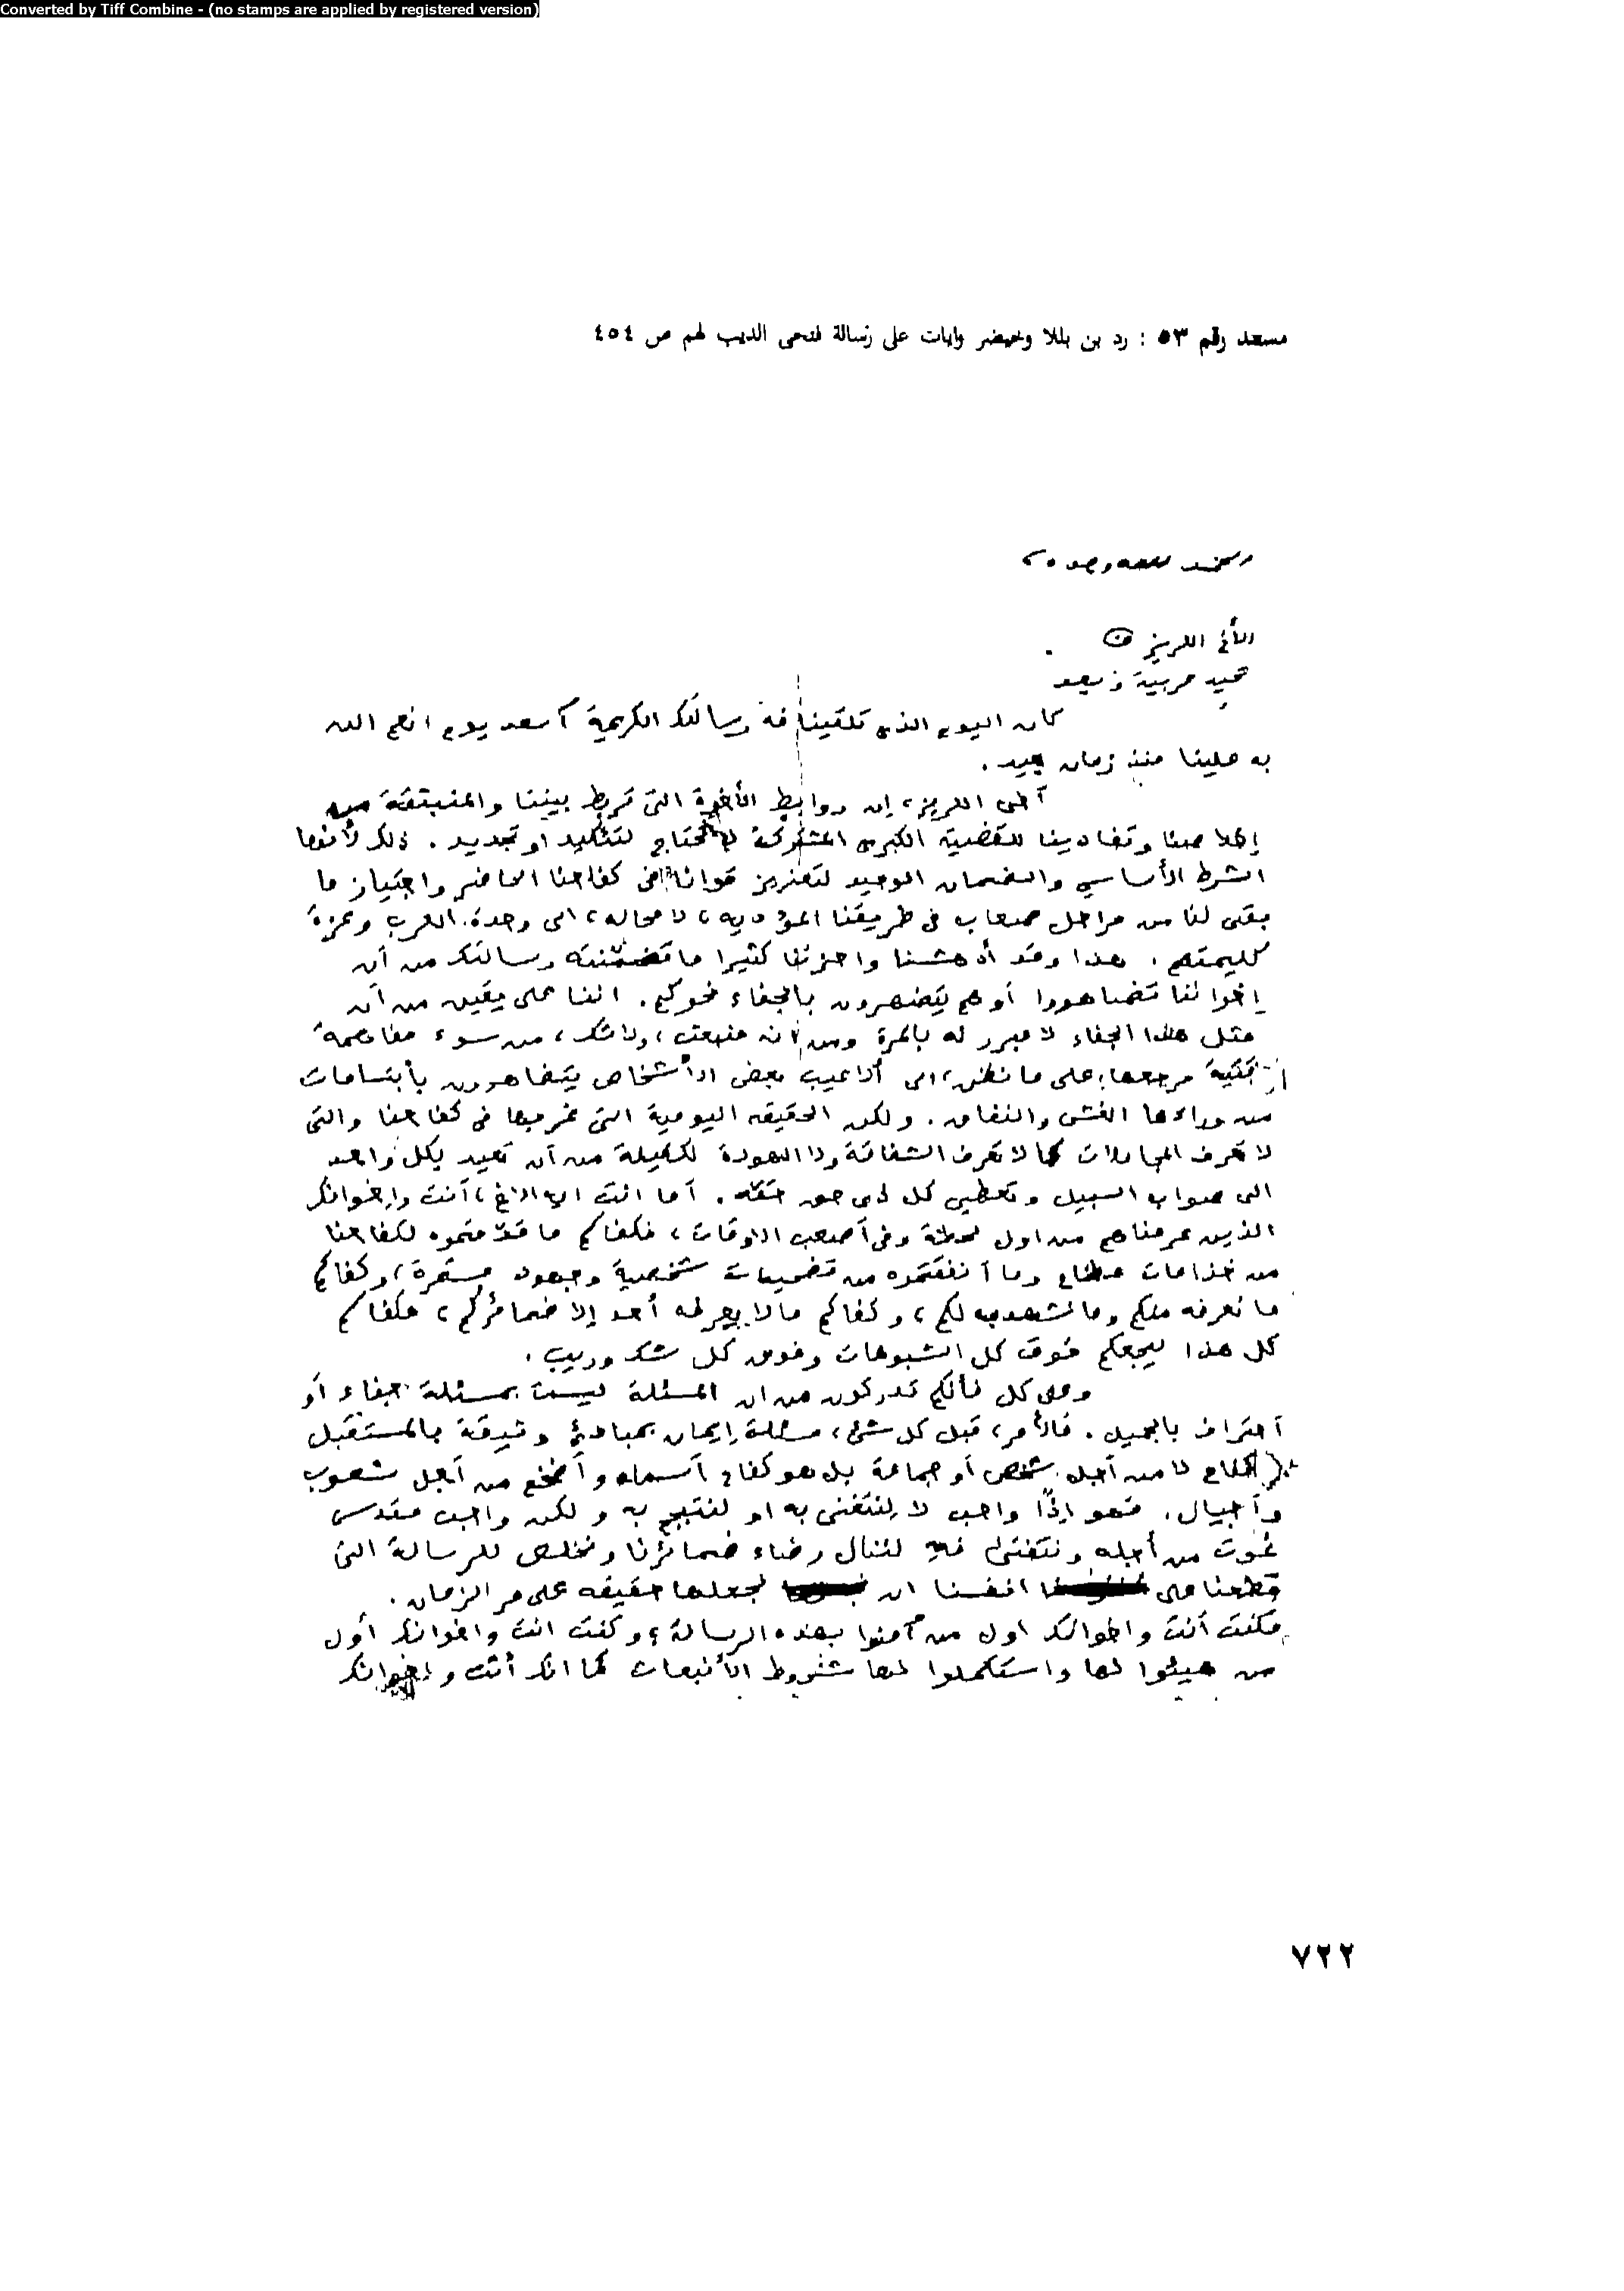 Converted by Tiff Combine - (no stamps are applied by registered version)
مستند رقم ٥٣ : رد بن بللا وخيضر وايات على رسالة فتحى الديب لهم ص ٤٥٤
الحمد لله وحده
الأخ العزيز ف
تحية عربية وبعد
كان اليوم الذى تلقينا فيه رسالتك الكريمة أسعد يوم انعم الله
به علينا منذ زمان بعيد .
أخى العزيز، إن روابط الأخوة التى تربط بيننا والمنبثقة من
إخلاصنا وتفانينا للقضية الكبرى المشتركة لا تحتاج لتأكيد او تجديد . ذلك لأنها
الشرط الأساسي والضمان الوحيد لتعزيز قوانا فى كفاحنا الحاضر واجتياز ما
بقى لنا من مراحل صعاب فى طريقنا المؤدية، لا محالة، الى وحدة العرب وعزة
كلمتهم . هذا وقد أدهشنا واحزننا كثيرا ما تضمنته رسالتك من أن
إخواننا تضاهروا أو هم يتضهرون بالجفاء نحوكم . اننا على يقين من أن
مثل هذا الجفاء لا مبرر له بالمرة وانه منبعث، ولا شك، من سوء مفاهمة
مرجعها، على ما نظن، الى ألاعيب بعض الأشخاص يتضاهرون بأبتسامات
من وراءها الغش والنفاق . ولكن الحقيقه اليومية التى نمر بها فى كفاحنا والتى
لا تعرف المجاملات كما لا تعرف الشفاقة ولا الهودة لكفيلة من أن تعيد بكل واحد
الى صواب السبيل وتعطي كل ذى حق حقه . أما انت ايها الاخ، أنت وإخوانك
الذين عرفناهم من اول لحظة وفى أصعب الاوقات، فكفاكم ما قدمتموه لكفاحنا
من خدامات عظام وما أنفقتموه من تضحيات شخصية وجهود مستمرة، وكفاكم
ما نعرفه منكم وما نشهد به لكم، وكفاكم ما لا يعرفه أحد إلا ضمائركم، فكفاكم
كل هذا ليجعلكم فوق كل الشبوهات وفوق كل شك وريب .
وعلى كل فأنكم تدركون من ان المسئلة ليست بمسئلة جفاء أو
أعتراف بالجميل . فالأمر، قبل كل شئ، مسئلة إيمان بمبادئ وثيقة بالمستقبل
كفاح لا من أجل شخص أو جماعة بل هو كفاح أسماه وأضخم من أجل شعوب
وأجيال . فهو إذًا واجب لا لنتغنى به او لنتبجح به ولكن واجب مقدس
نموت من أجله ونتفنى فيه لننال رضاء ضمائرنا ونخلص للرسالة التى
قطعنا على انفسنا ان نجعلها حقيقه على مر الزمان .
فكنت أنت واخوانك اول من آمنوا بهذه الرسالة، وكنت انت واخوانك أول
من هيئوا لها واستكملوا لها شروط الأنبعاث كما انك أنت وإخوانك
٧٢٢